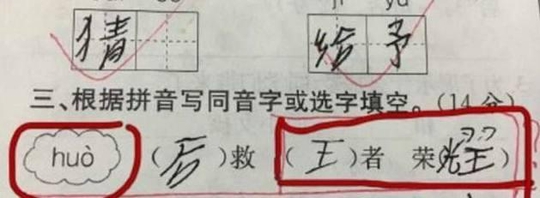 猜 给予
三、根据拼音写同音字或选字填空。(14分)
huò (后)救 (王)者 荣耀)